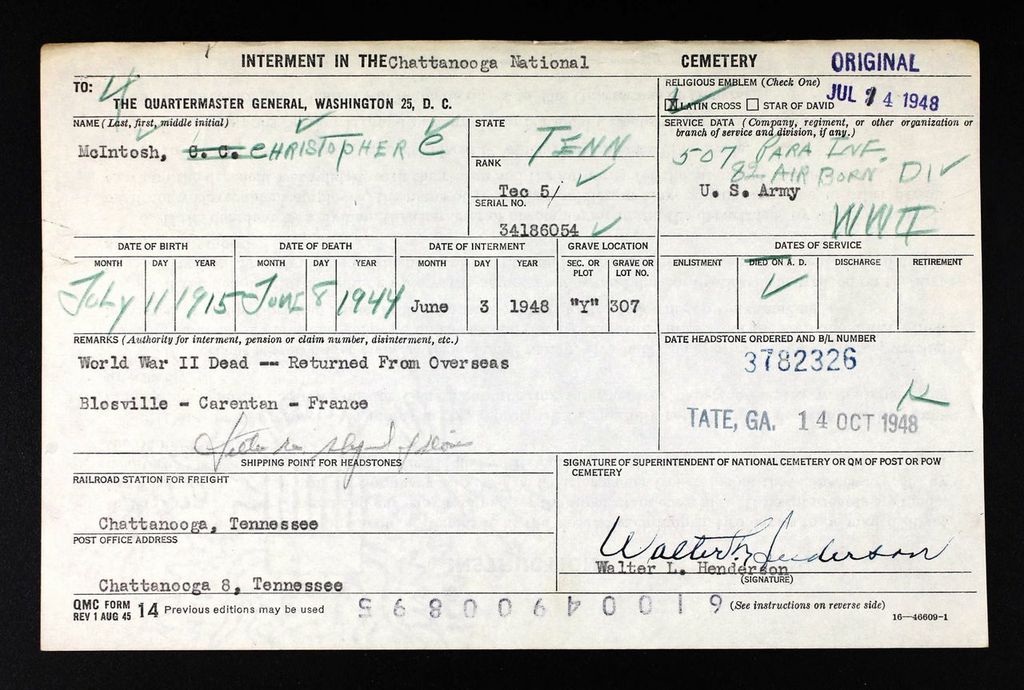 INTERMENT IN THE Chattanooga National CEMETERY
ORIGINAL
TO: 4
THE QUARTERMASTER GENERAL, WASHINGTON 25, D. C.
RELIGIOUS EMBLEM (Check One)
JUL 14 1948
X LATIN CROSS STAR OF DAVID
NAME (Last, first, middle initial)
McIntosh, C. C. CHRISTOPHER C
STATE
TENN
RANK
Tec 5/
SERIAL NO.
34186054
SERVICE DATA (Company, regiment, or other organization or branch of service and division, if any.)
507 PARA INF.
82 AIR BORN DIV
U. S. Army
WWII
DATE OF BIRTH DATE OF DEATH DATE OF INTERMENT GRAVE LOCATION DATES OF SERVICE
MONTH DAY YEAR MONTH DAY YEAR MONTH DAY YEAR SEC. OR PLOT GRAVE OR LOT NO. ENLISTMENT DIED ON A. D. DISCHARGE RETIREMENT
JULY 11 1915 JUNE 8 1944 June 3 1948 "Y" 307
REMARKS (Authority for interment, pension or claim number, disinterment, etc.)
World War II Dead -- Returned From Overseas
Blosville - Carentan - France
DATE HEADSTONE ORDERED AND B/L NUMBER
3782326
TATE, GA. 14 OCT 1948
SHIPPING POINT FOR HEADSTONES
RAILROAD STATION FOR FREIGHT
Chattanooga, Tennessee
POST OFFICE ADDRESS
Chattanooga 8, Tennessee
SIGNATURE OF SUPERINTENDENT OF NATIONAL CEMETERY OR QM OF POST OR POW CEMETERY
Walter L. Henderson
Walter L. Henderson
(SIGNATURE)
QMC FORM REV 1 AUG 45 14 Previous editions may be used
(See instructions on reverse side)
16—46609-1